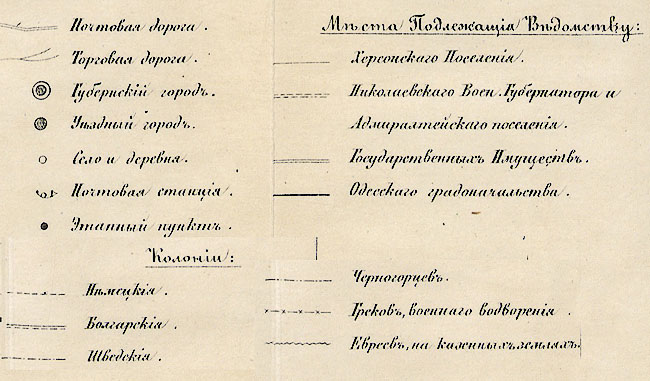 Почтовая дорога.
Торговая дорога.
Губернскій городъ.
Уѣздный городъ.
Село и деревня.
Почтовая станція.
Этапный пунктъ.
Колоніи:
Нѣмецкія.
Болгарскія.
Шведскія.
Мѣста Подлежащія Вѣдомству:
Херсонскаго Поселенія.
Николаевскаго Воен. Губернатора и
Адмиралтейскаго поселенія.
Государственныхъ Имуществъ.
Одесскаго градоначальства.
Черногорцевъ.
Грековъ, военнаго водворенія
Евреевъ, на казенныхъ земляхъ.